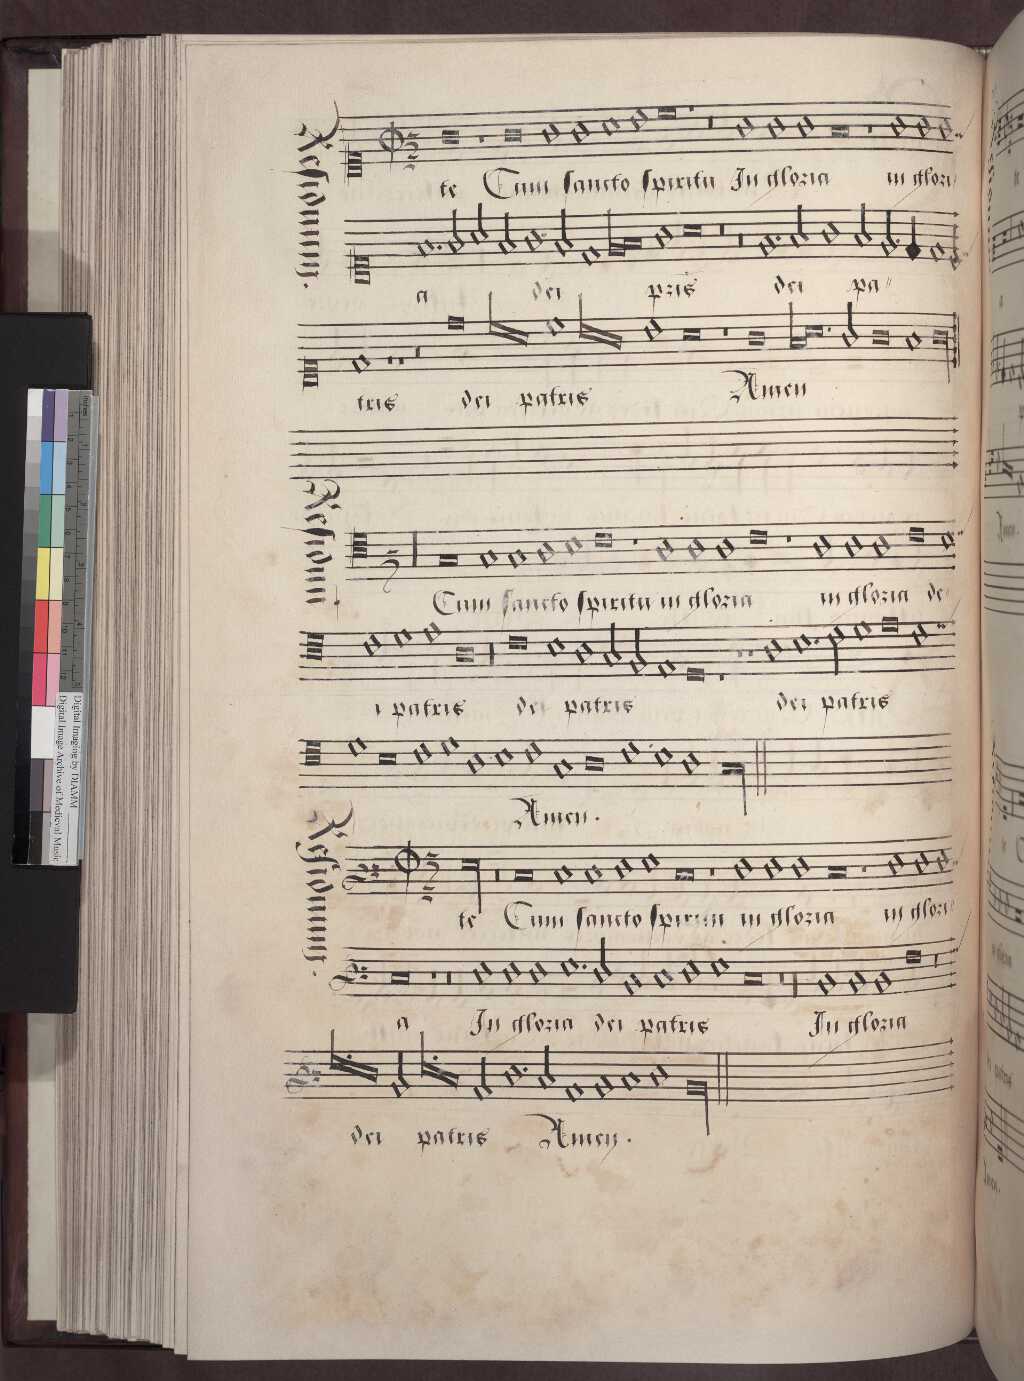 Residuum.
te Cum sancto spiritu In gloria in glori
a dei pris dei pa
tris dei patris Amen
Residuū
Cum sancto spiritu in gloria in gloria de
i patris dei patris dei patris
Amen.
Residuum.
te Cum sancto spiritu in gloria in glori
a In gloria dei patris In gloria
dei patris Amen.
Digital Imaging by DIAMM
Digital Image Archive of Medieval Music